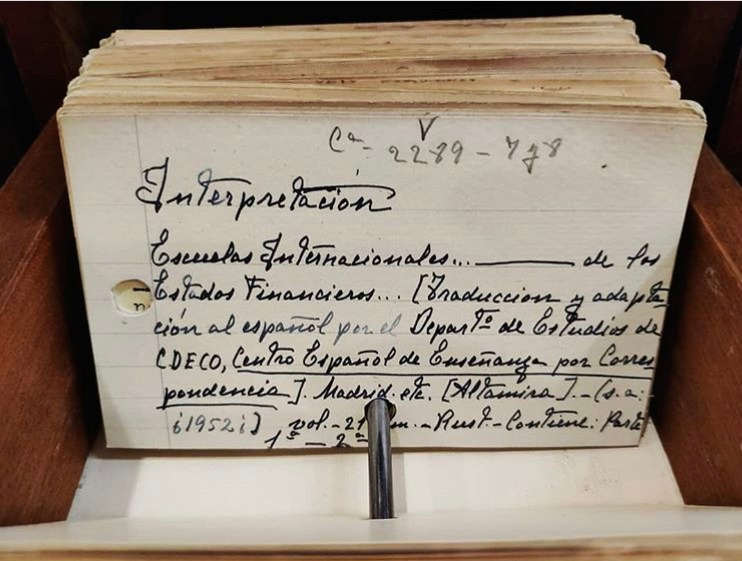 V
Cª- 2289-778
Interpretación
Escuelas Internacionales... ——— de los
Estados Financieros... [Traduccion y adapta-
ción al español por el Departº de Estudios de
CDECO, Centro Español de Enseñanza por Corres-
pondencia]. Madrid. etc. [Altamira].-(s.a:
¿1952¿] vol.-21 m.-Rust.-Contiene: Parte
1ª-2ª
n